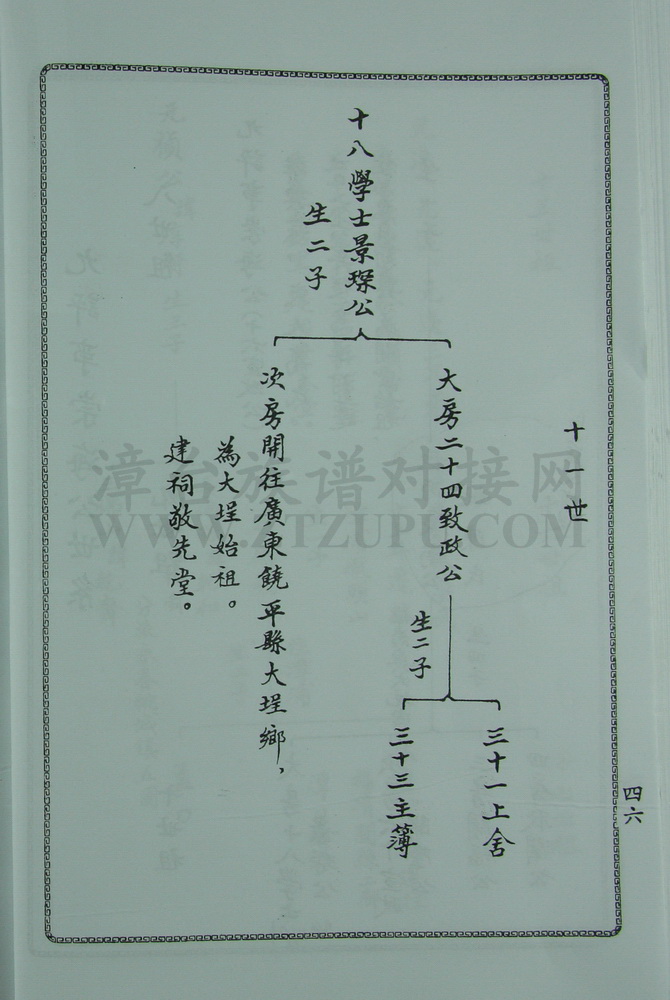 十一世
十八學士景琛公
生二子
大房二十四致政公
生二子
三十一上舍
三十三主簿
次房開往廣東饒平縣大埕鄉，
為大埕始祖。
建祠敬先堂。
四六
漳台族谱对接网
WWW.ZTZUPU.COM